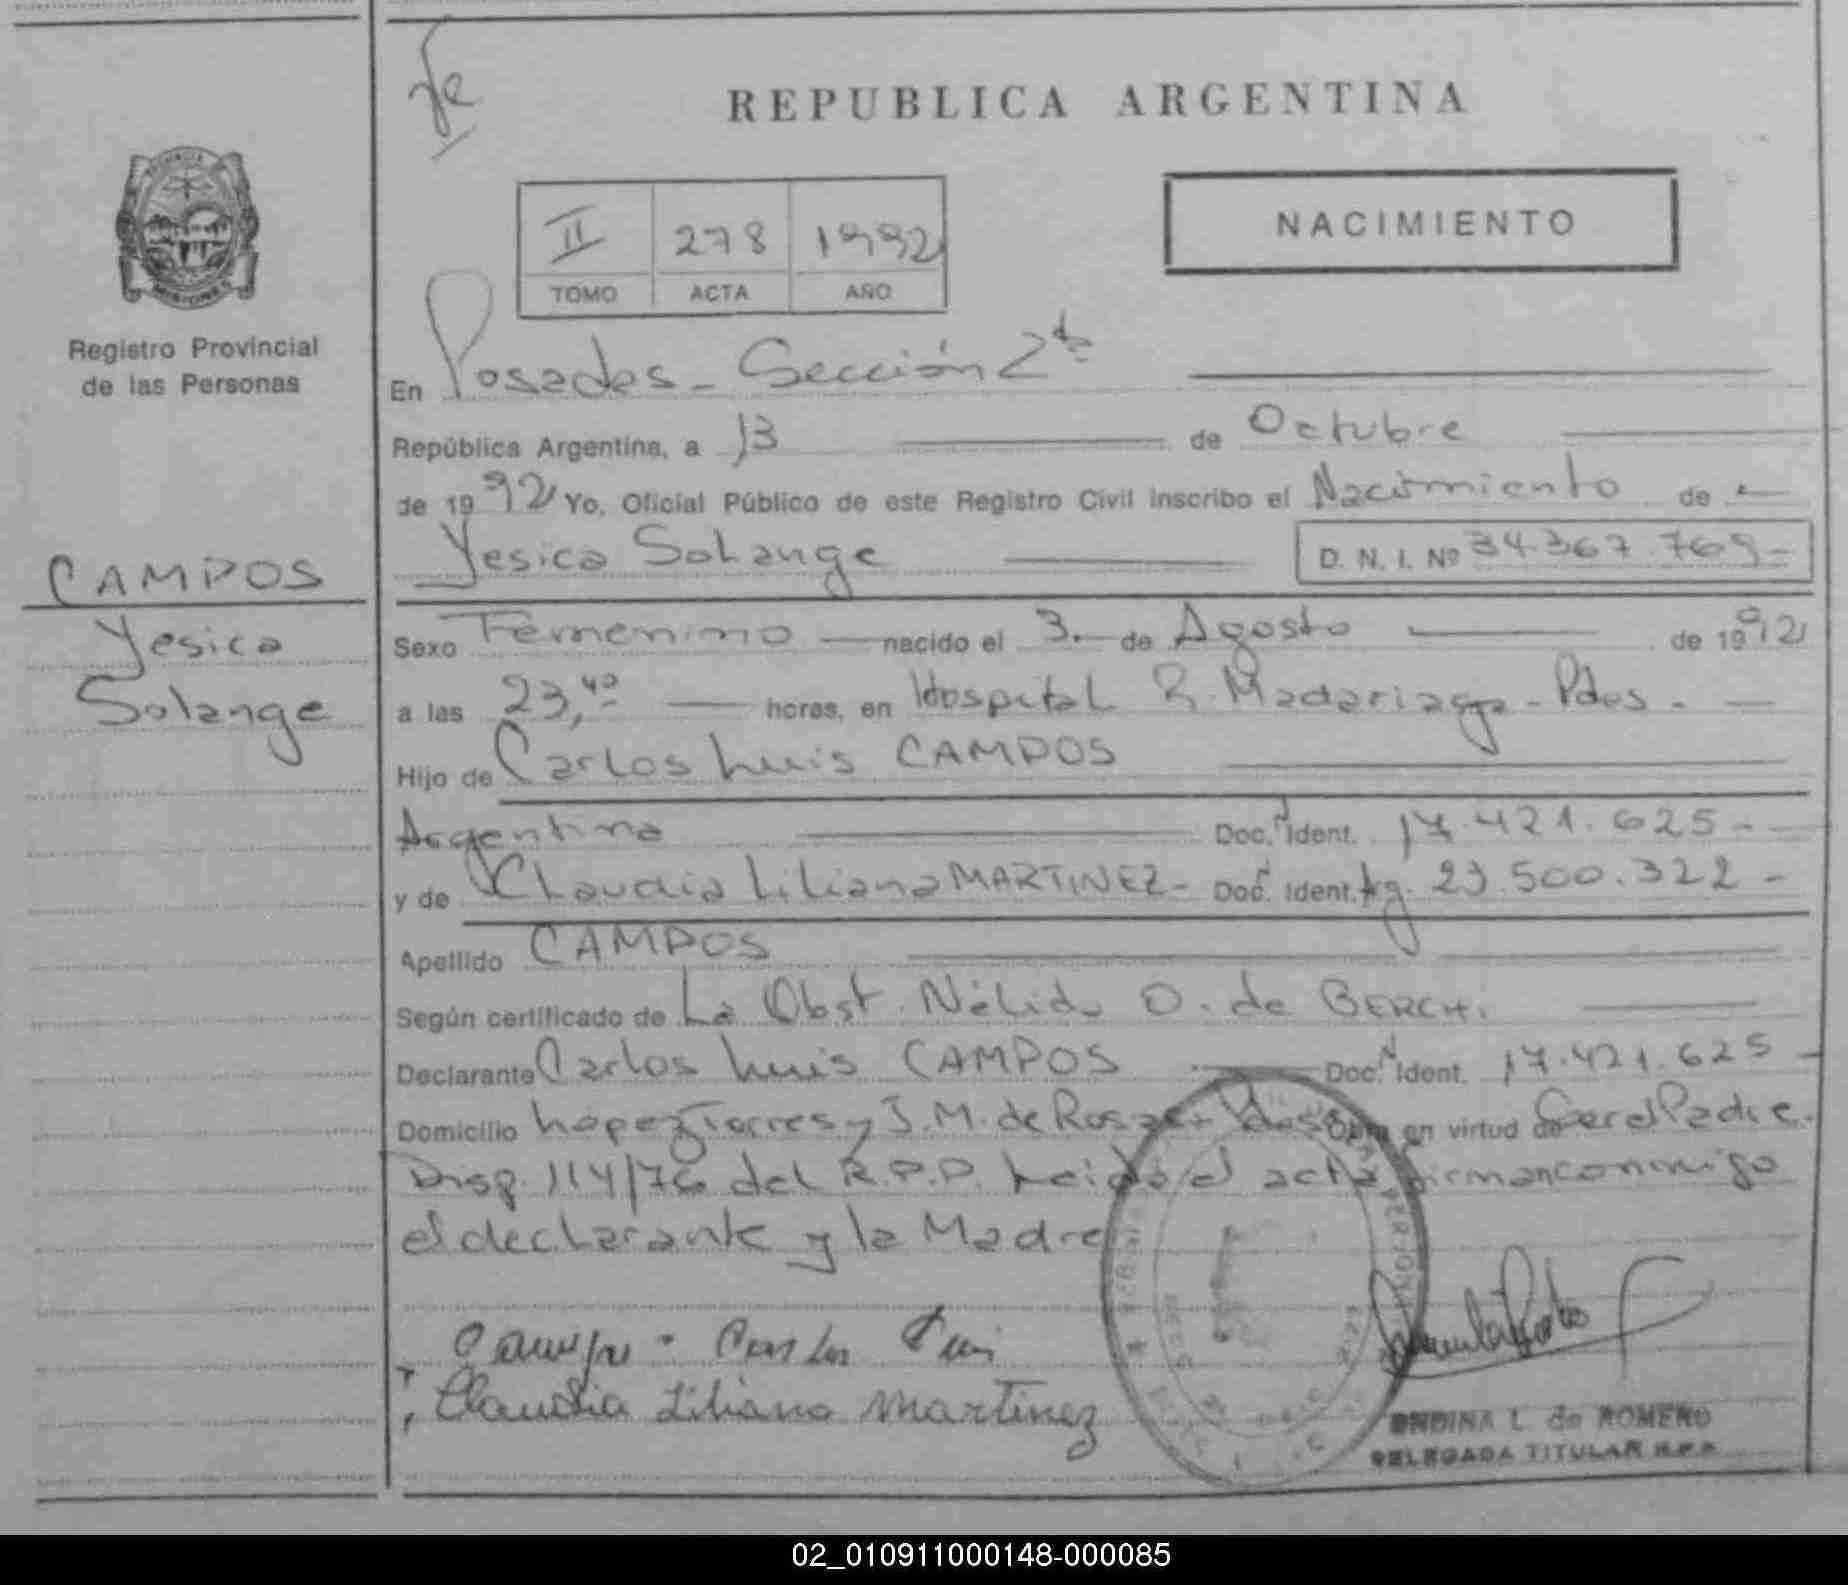 REPUBLICA ARGENTINA
NACIMIENTO
II 278 1992
TOMO ACTA AÑO
MISIONES
Registro Provincial
de las Personas
CAMPOS
Yesica
Solange
En Posadas - Sección 2da
República Argentina, a 13 de Octubre
de 1992 Yo, Oficial Público de este Registro Civil inscribo el Nacimiento de
Yesica Solange D. N. I. Nº 34.367.769-
Sexo Femenino nacido el 3. de Agosto de 1992
a las 23,40 horas, en Hospital R. Madariaga - Pdas -
Hijo de Carlos Luis CAMPOS
Argentina Doc. Ident. 17.421.625-
y de Claudia Liliana MARTINEZ- Doc. Ident. Ag. 23.500.322-
Apellido CAMPOS
Según certificado de La Obst. Nélida O. de BERCH.
Declarante Carlos Luis CAMPOS Doc. Ident. 17.421.625-
Domicilio López Torres y J.M. de Rosas - Pdas Obra en virtud de Ser el Padre.
Disp. 114/76 del R.P.P. Leída el acta firman conmigo
el declarante y la Madre
Campos Carlos Luis
Claudia Liliana Martinez
ONDINA L. de ROMERO
DELEGADA TITULAR R.P.P.
02_010911000148-000085